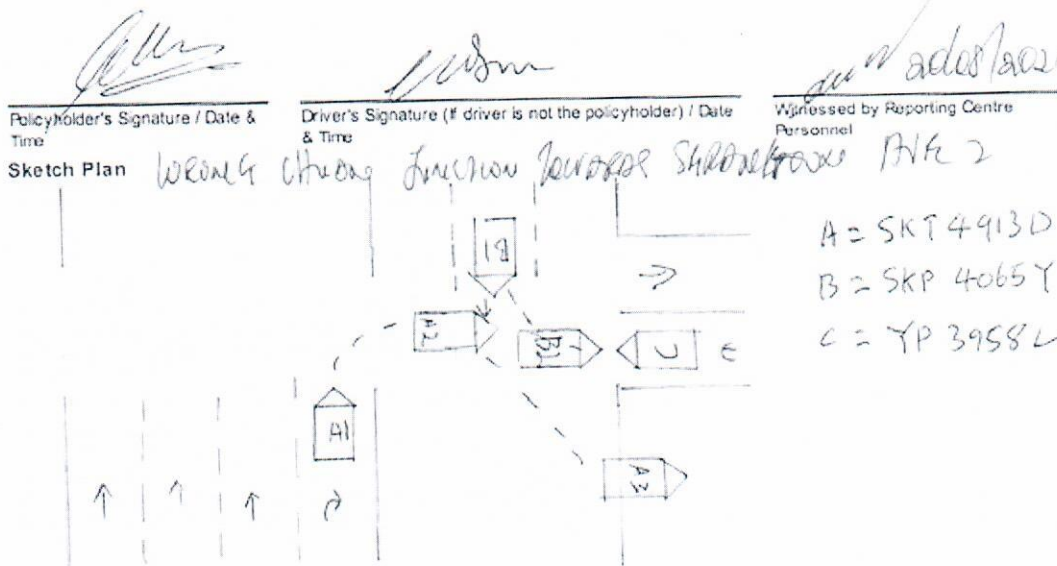 Policyholder's Signature / Date & Time
Driver's Signature (If driver is not the policyholder) / Date & Time
Witnessed by Reporting Centre Personnel
Sketch Plan
Junction AVE 2
A = SKT 4913D
B = SKP 4065Y
C = YP 3958L
B1
A2
B2
C
A1
A3